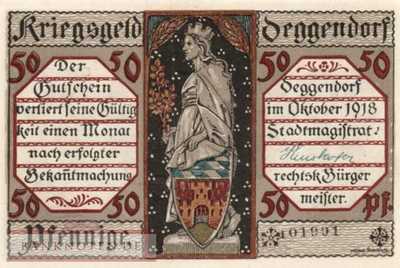 Kriegsgeld Deggendorf
50 50 50 50
Der
Gutschein
verliert seine Gültig
keit einen Monat
nach erfolgter
Bekanntmachung
Deggendorf
im Oktober 1918
Stadtmagistrat:
rechtsk. Bürger
meister.
50 50 50 50
Pfennige Pf.
101991